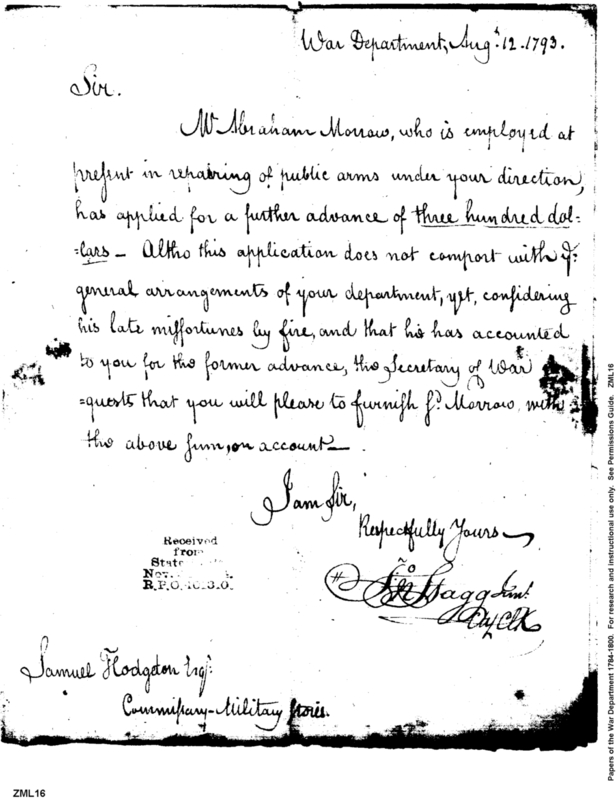 War Department, Augt. 12. 1793.
Sir.
Mr. Abraham Morrow, who is employed at
present in repairing of public arms under your direction,
has applied for a further advance of three hundred dol=
=lars — Altho this application does not comport with ye:
general arrangements of your department, yet, considering
his late misfortunes by fire, and that he has accounted
to you for the former advance, the Secretary of War
=quests that you will please to furnish sd. Morrow, with
the above sum, on account —
I am Sir,
Respectfully Yours
Jno Stagg Junr.
Chf Clk
Received
from
State
Nov.
R.P.O.
Samuel Hodgdon Esqr.
Commissary-Military stores.
ZML16
Papers of the War Department 1784-1800. For research and instructional use only. See Permissions Guide. ZML16